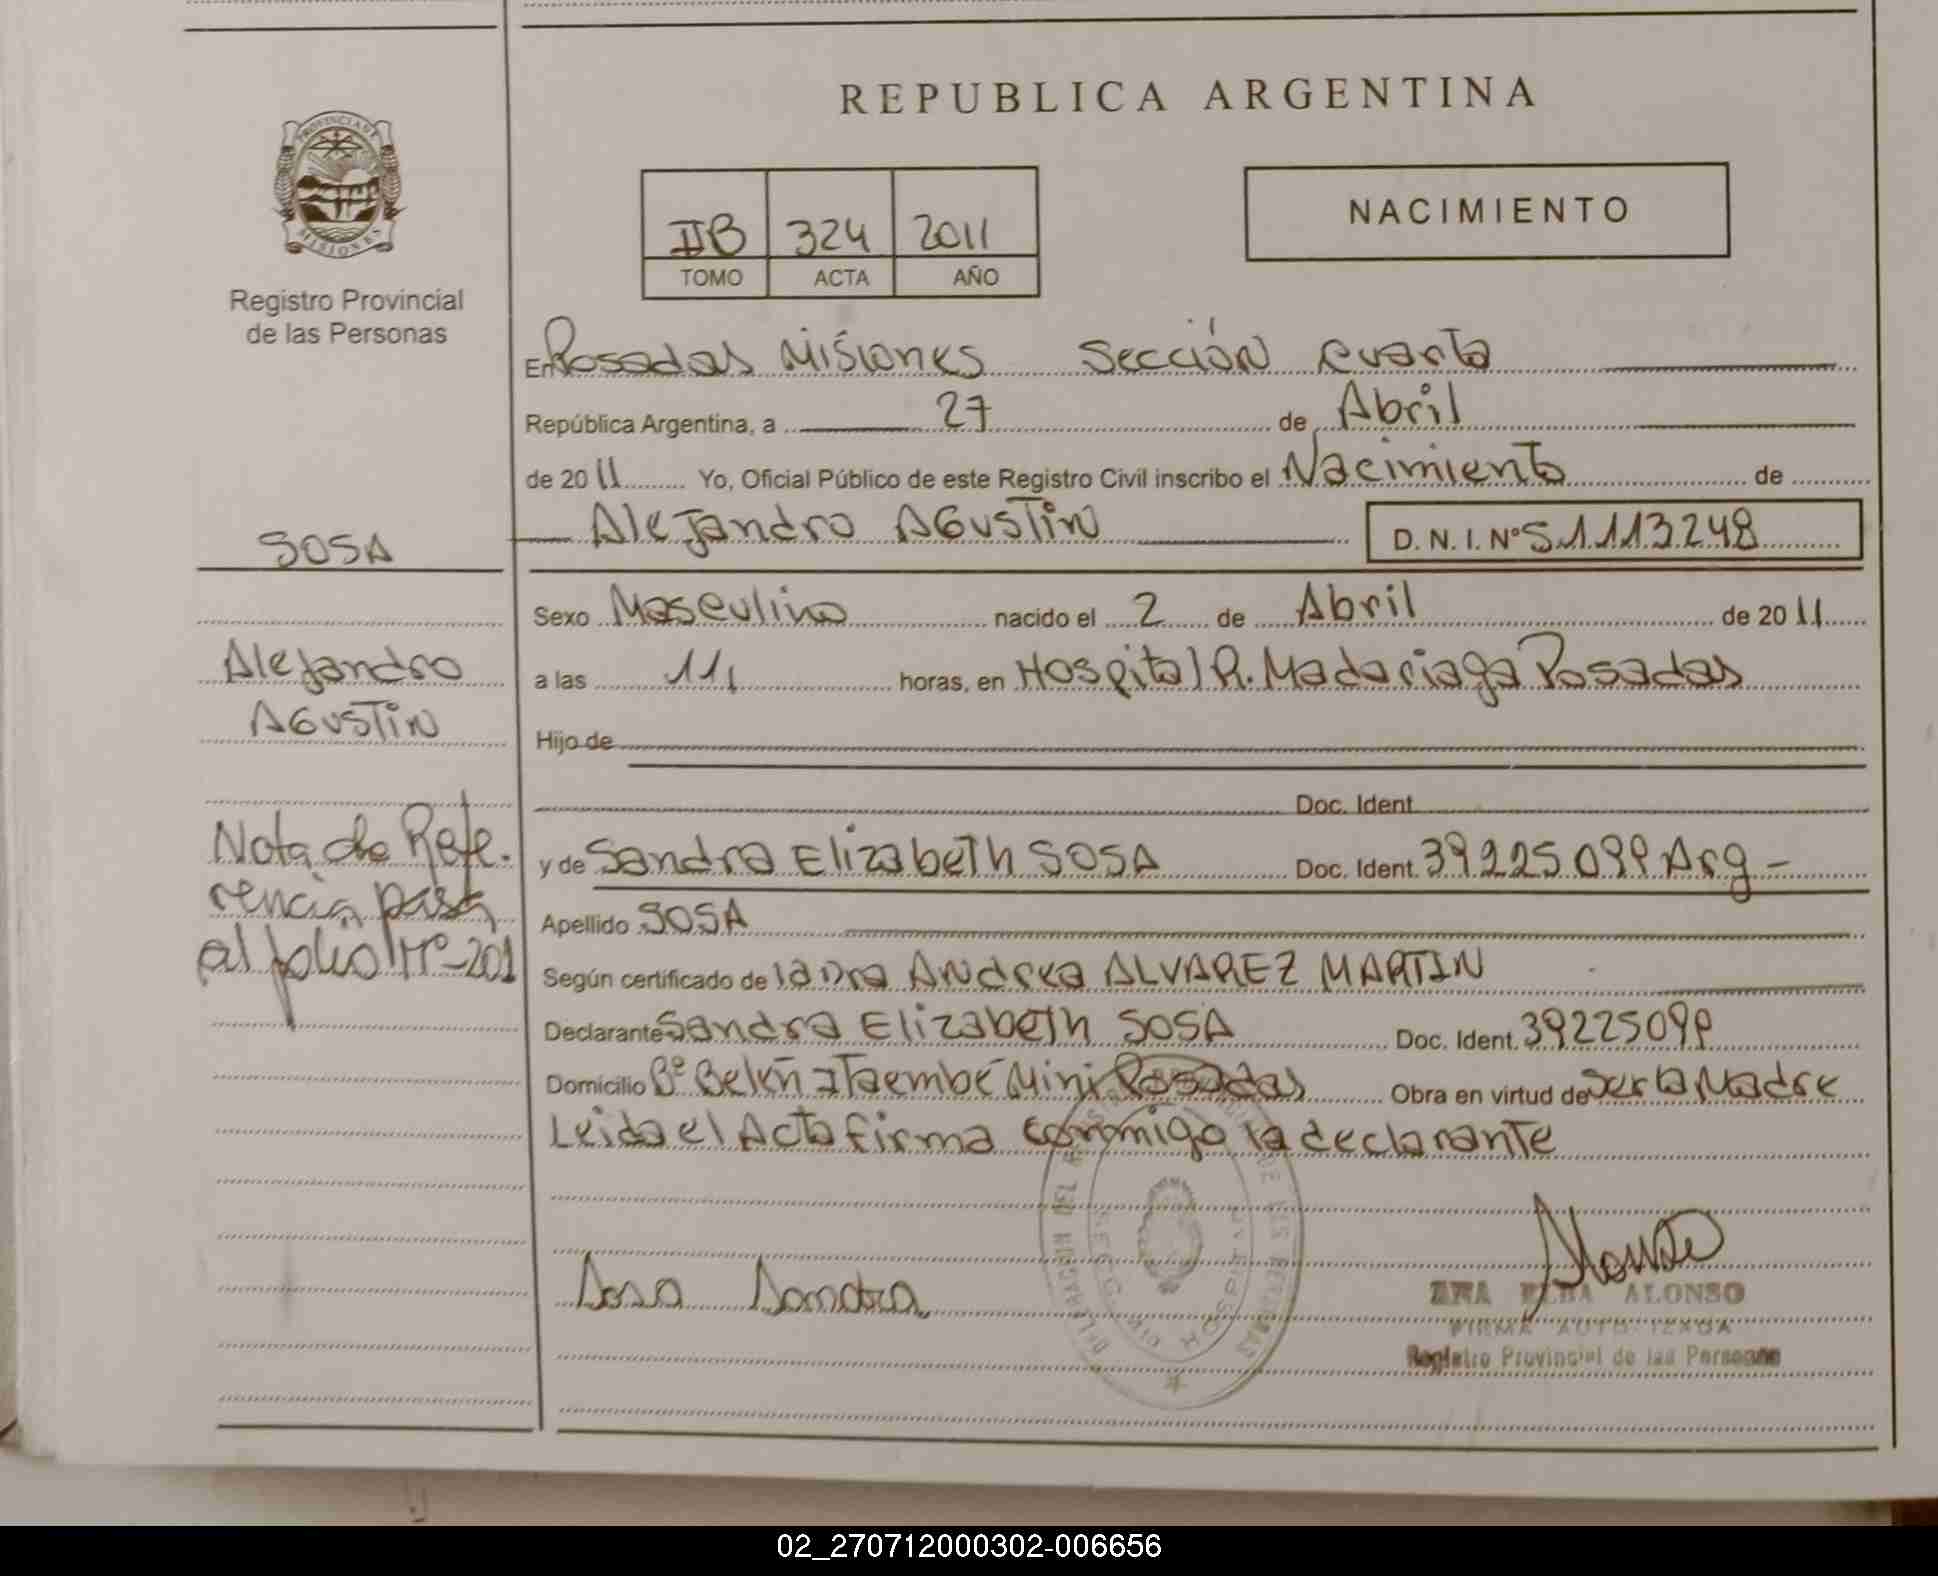 REPUBLICA ARGENTINA
PROVINCIA DE
MISIONES
Registro Provincial
de las Personas
IIB 324 2011
TOMO ACTA AÑO
NACIMIENTO
En Posadas Misiones Sección cuarta
República Argentina, a 27 de Abril
de 2011 Yo, Oficial Público de este Registro Civil inscribo el Nacimiento de
Alejandro Agustin D. N. I. Nº 51113248
SOSA
Sexo Masculino nacido el 2 de Abril de 2011
Alejandro
Agustin
a las 11, horas, en Hospital R. Madariaga Posadas
Hijo de
Doc. Ident
Nota de Refe-
rencia pasa
al folio Nº-201
y de Sandra Elizabeth SOSA Doc. Ident. 39225099 Arg -
Apellido SOSA
Según certificado de la Dra Andrea ALVAREZ MARTIN
Declarante Sandra Elizabeth SOSA Doc. Ident. 39225099
Domicilio Bº Belén Itaembé Mini Posadas Obra en virtud de ser la Madre
Leida el Acta firma conmigo la declarante
Sosa Sandra
ALONSO
FIRMA AUTORIZADA
Registro Provincial de las Personas
02_270712000302-006656